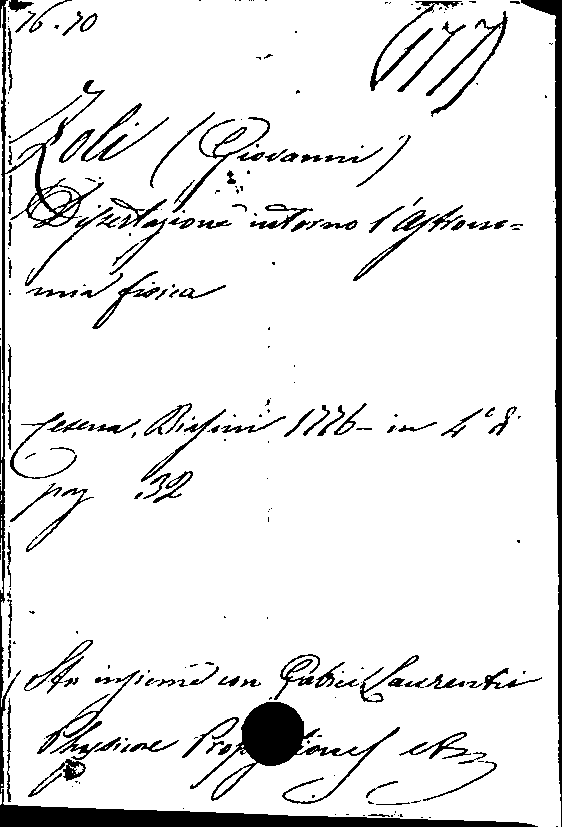 76.70
(177)
Zoli (Giovanni)
Dissertazione intorno l'Astrono=
mia fisica
Cesena, Biasini 1776 - in 4° di
pag 32
(Sta insieme con Laurentii
Physicae